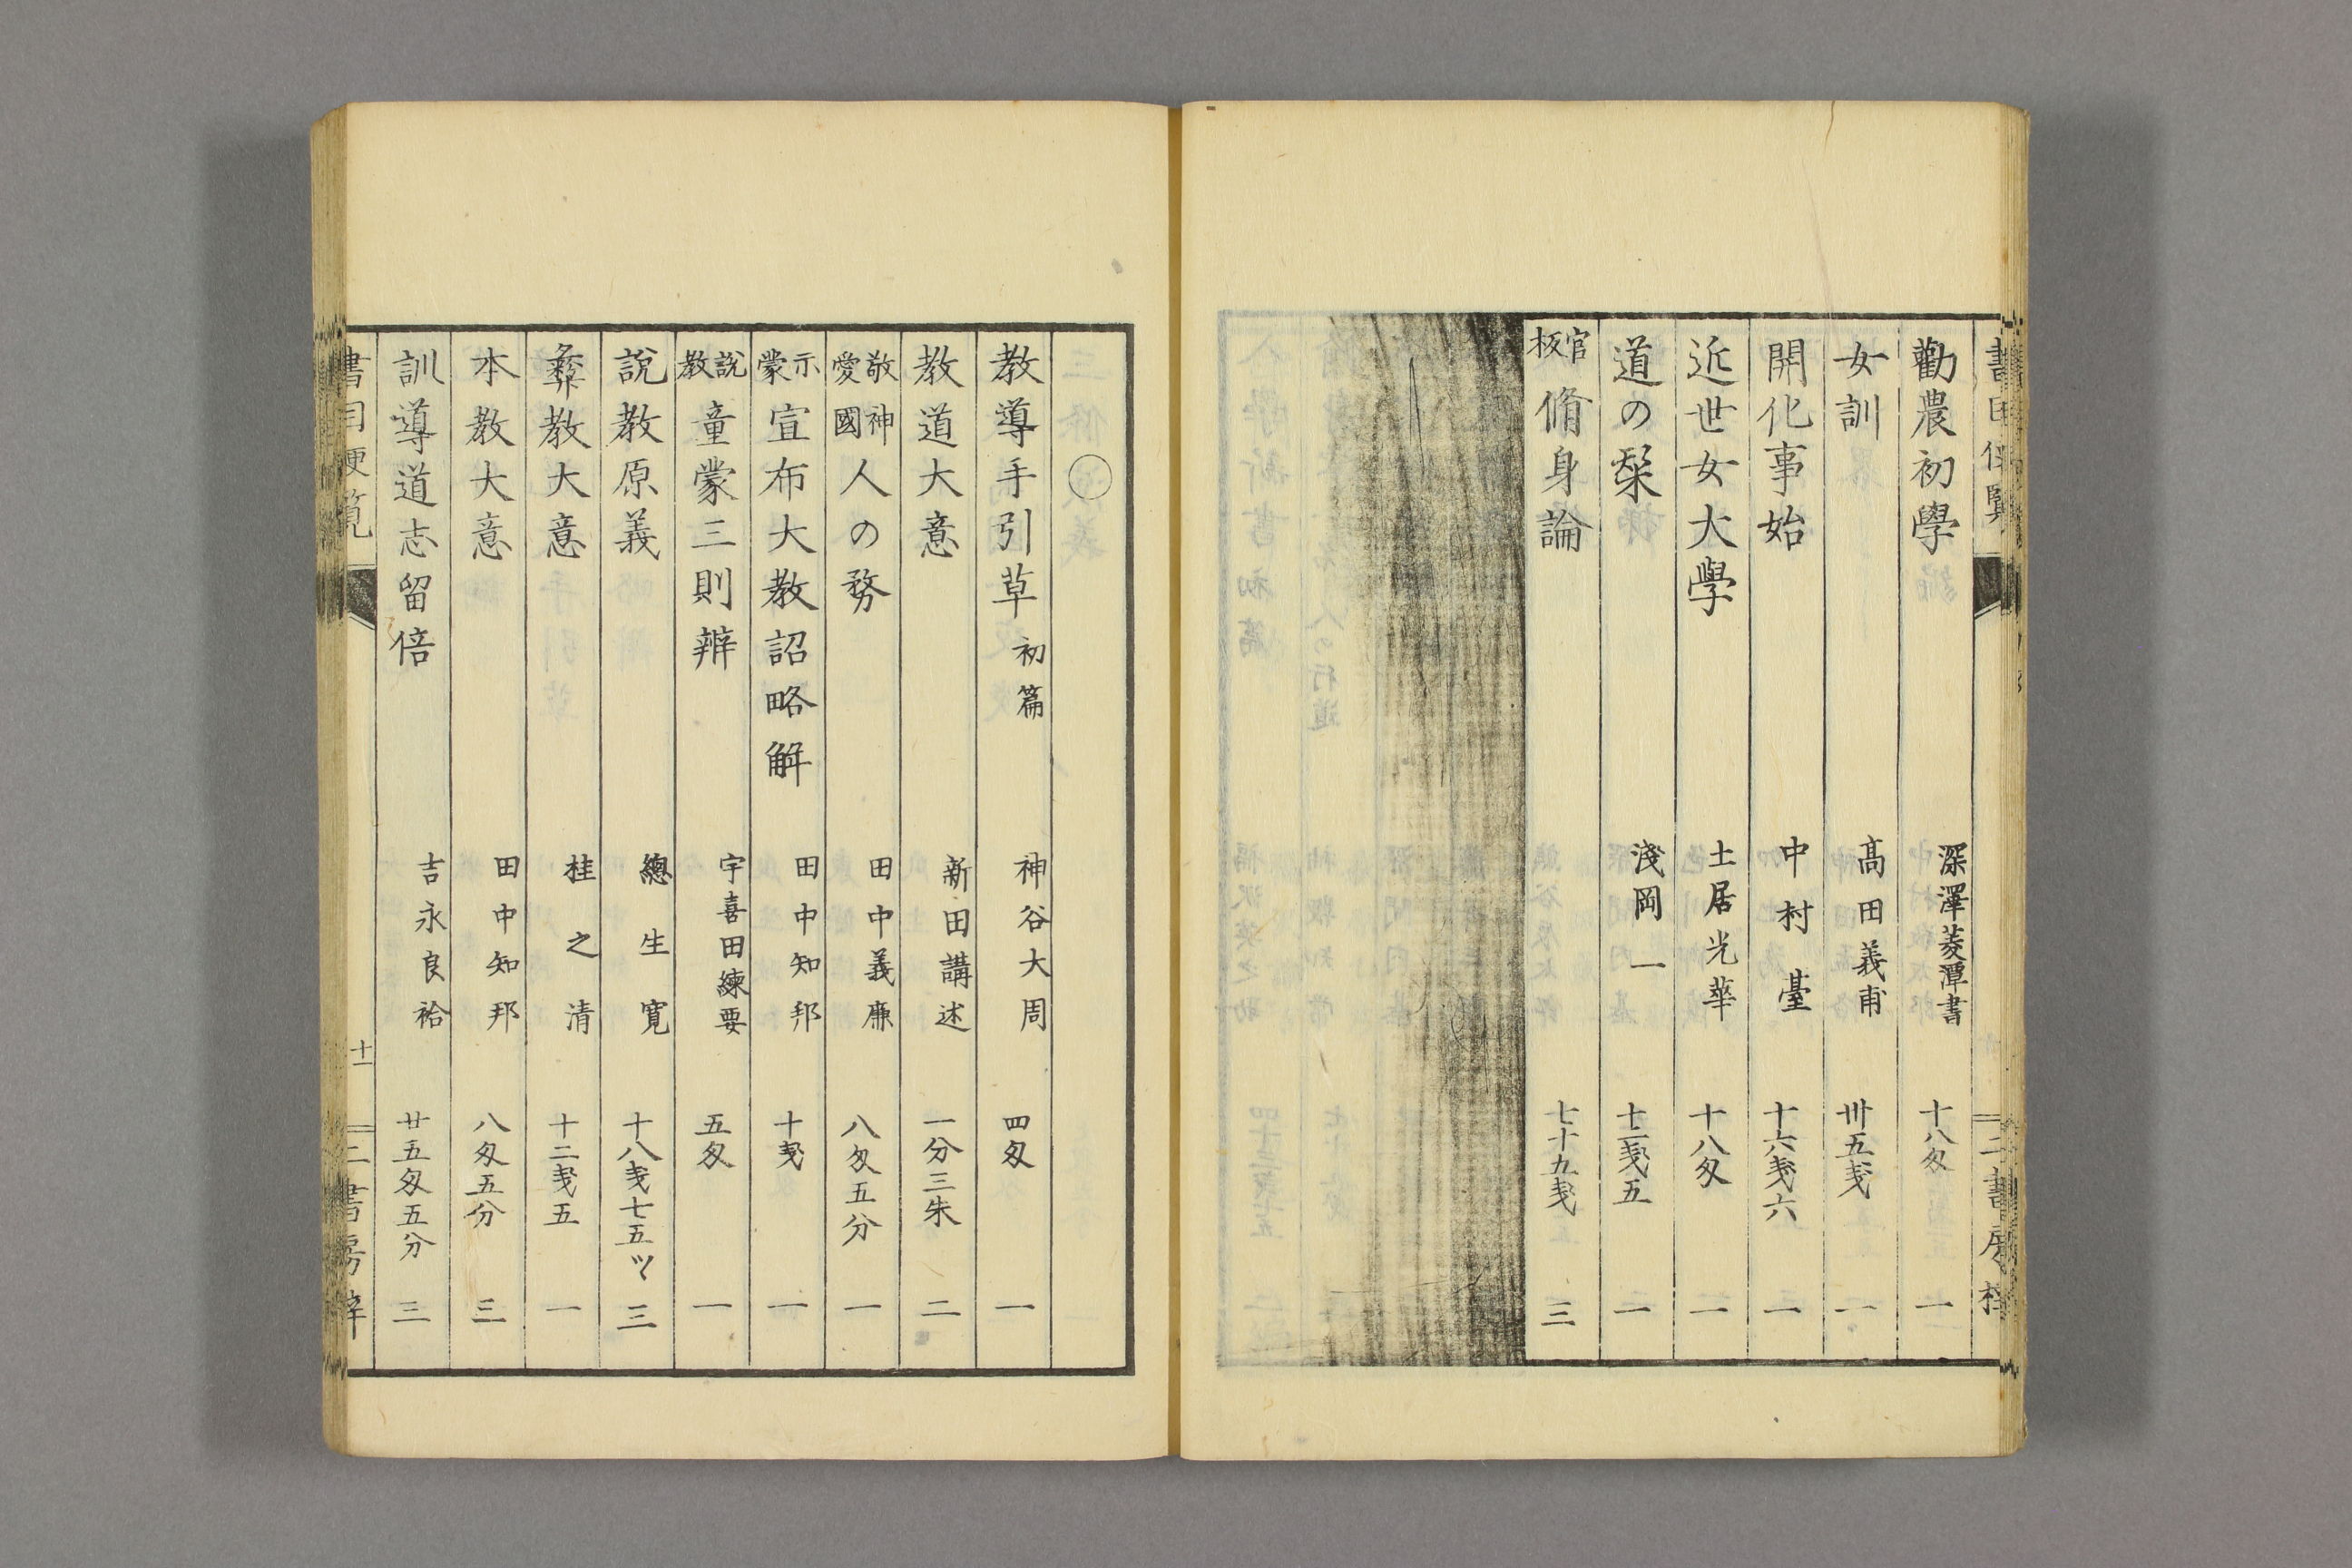 勸農初學 深澤菱潭書 十八匁 一
女訓 髙田義甫 卅五戔 一
開化事始 中村 臺 十六戔六 一
近世女大學 土居光華 十八匁 一
道の栞 淺岡 一 十二戔五 一
官板 脩身論 七十九戔 三
○
教導手引草 初篇 神谷大周 四匁 一
教道大意 新田講述 一分三朱 二
敬神愛國 人の務 田中義廉 八匁五分 一
示蒙 宣布大教詔略解 田中知邦 十戔 一
說教 童蒙三則辨 宇喜田練要 五匁 一
說教原義 總生寛 十八戔七五ツヽ 三
彝教大意 桂之清 十二戔五 一
本教大意 田中知邦 八匁五分 三
訓導道志留倍 吉永良袷 廿五匁五分 三
書目便覧 十一 二書房梓